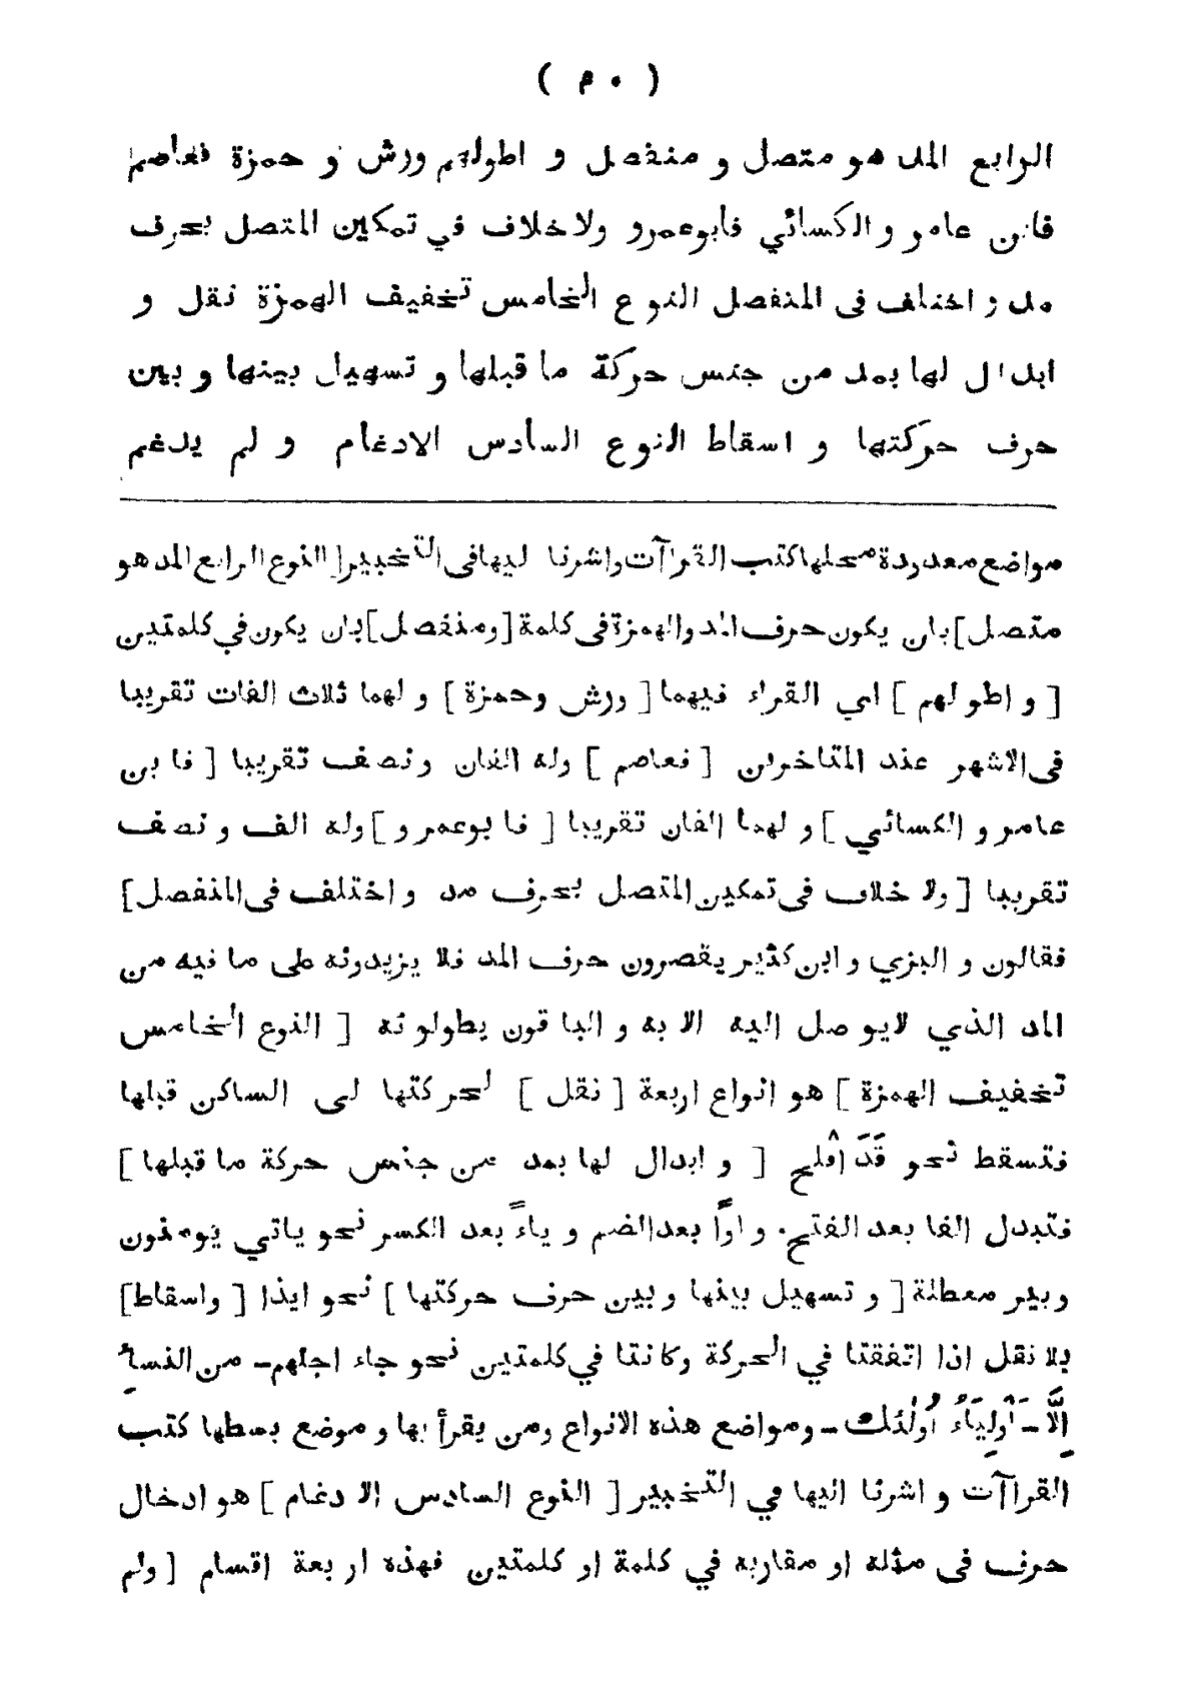 ( ٣٠ )
الرابع المد هو متصل و منفصل و اطولهم ورش و حمزة فعاصم
فابن عامر و الكسائي فأبوعمرو ولاخلاف في تمكين المتصل بحرف
مد و اختلف فى المنفصل النوع الخامس تخفيف الهمزة نقل و
ابدال لها بمد من جنس حركة ما قبلها و تسهيل بينها و بين
حرف حركتها و اسقاط النوع السادس الادغام و لم يدغم
مواضع معدردة محلها كتب القراآت واشرنا ليهافى التخبير [ النوع الرابع المد هو
متصل ] بان يكون حرف المد والهمزة فى كلمة [ ومنفصل ] بان يكون في كلمتين
[ و اطولهم ] اي القراء فيهما [ ورش وحمزة ] و لهما ثلاث الفات تقريبا
فى الاشهر عند المتاخرين [ فعاصم ] وله الفان ونصف تقريبا [ فا بن
عامر و الكسائي ] و لهما الفان تقريبا [ فا بوعمرو ] وله الف و نصف
تقريبا [ ولا خلاف فى تمكين المتصل بحرف مد و اختلف فى المنفصل ]
فقالون و البزي و ابن كثير يقصرون حرف المد فلا يزيدونه على ما فيه من
المد الذي لايوصل اليه الا به و البا قون يطولونه [ النوع الخامس
تخفيف الهمزة ] هو انواع اربعة [ نقل ] لحركتها لى الساكن قبلها
فتسقط نحو قَدَ افْلح [ و ابدال لها بمد من جنس حركة ما قبلها ]
فتبدل الفا بعد الفتح و اوًا بعدالضم و ياءً بعد الكسر نحو ياتي يومنون
وبير معطلة [ و تسهيل بينها و بين حرف حركتها ] نحو ايذا [ واسقاط ]
بلا نقل اذا اتفقتا في الحركة وكانتا في كلمتين نحو جاء اجلهم - من النساءِ
اِلَّا - أَوْلِيَاءُ أُولٰئك - ومواضع هذه الانواع ومن يقرأ بها و موضع بسطها كتب
القراآت و اشرنا اليها في التخبير [ النوع السادس الا دغام ] هو ادخال
حرف فى مثله او مقاربه في كلمة او كلمتين فهذه اربعة اقسام [ ولم